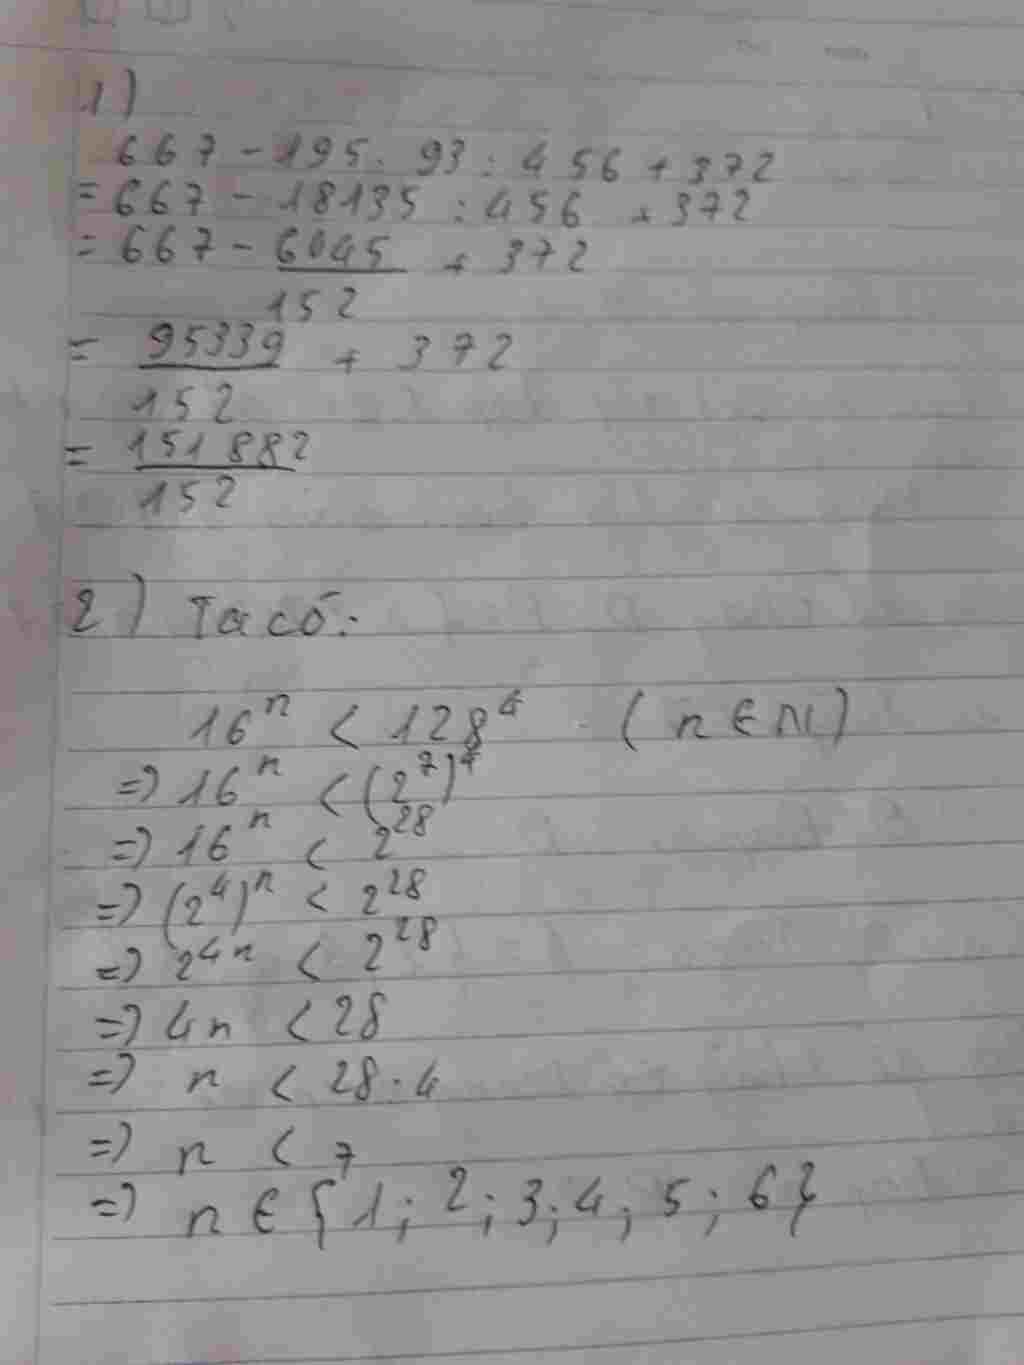 1)
667 - 195 . 93 : 456 + 372
= 667 - 18135 : 456 + 372
= 667 - 6045/152 + 372
= 95339/152 + 372
= 151882/152
2) Ta có:
16^n < 128^4 (n ∈ N)
=> 16^n < (2^7)^4
=> 16^n < 2^28
=> (2^4)^n < 2^28
=> 2^4n < 2^28
=> 4n < 28
=> n < 28 . 4
=> n < 7
=> n ∈ {1; 2; 3; 4; 5; 6}